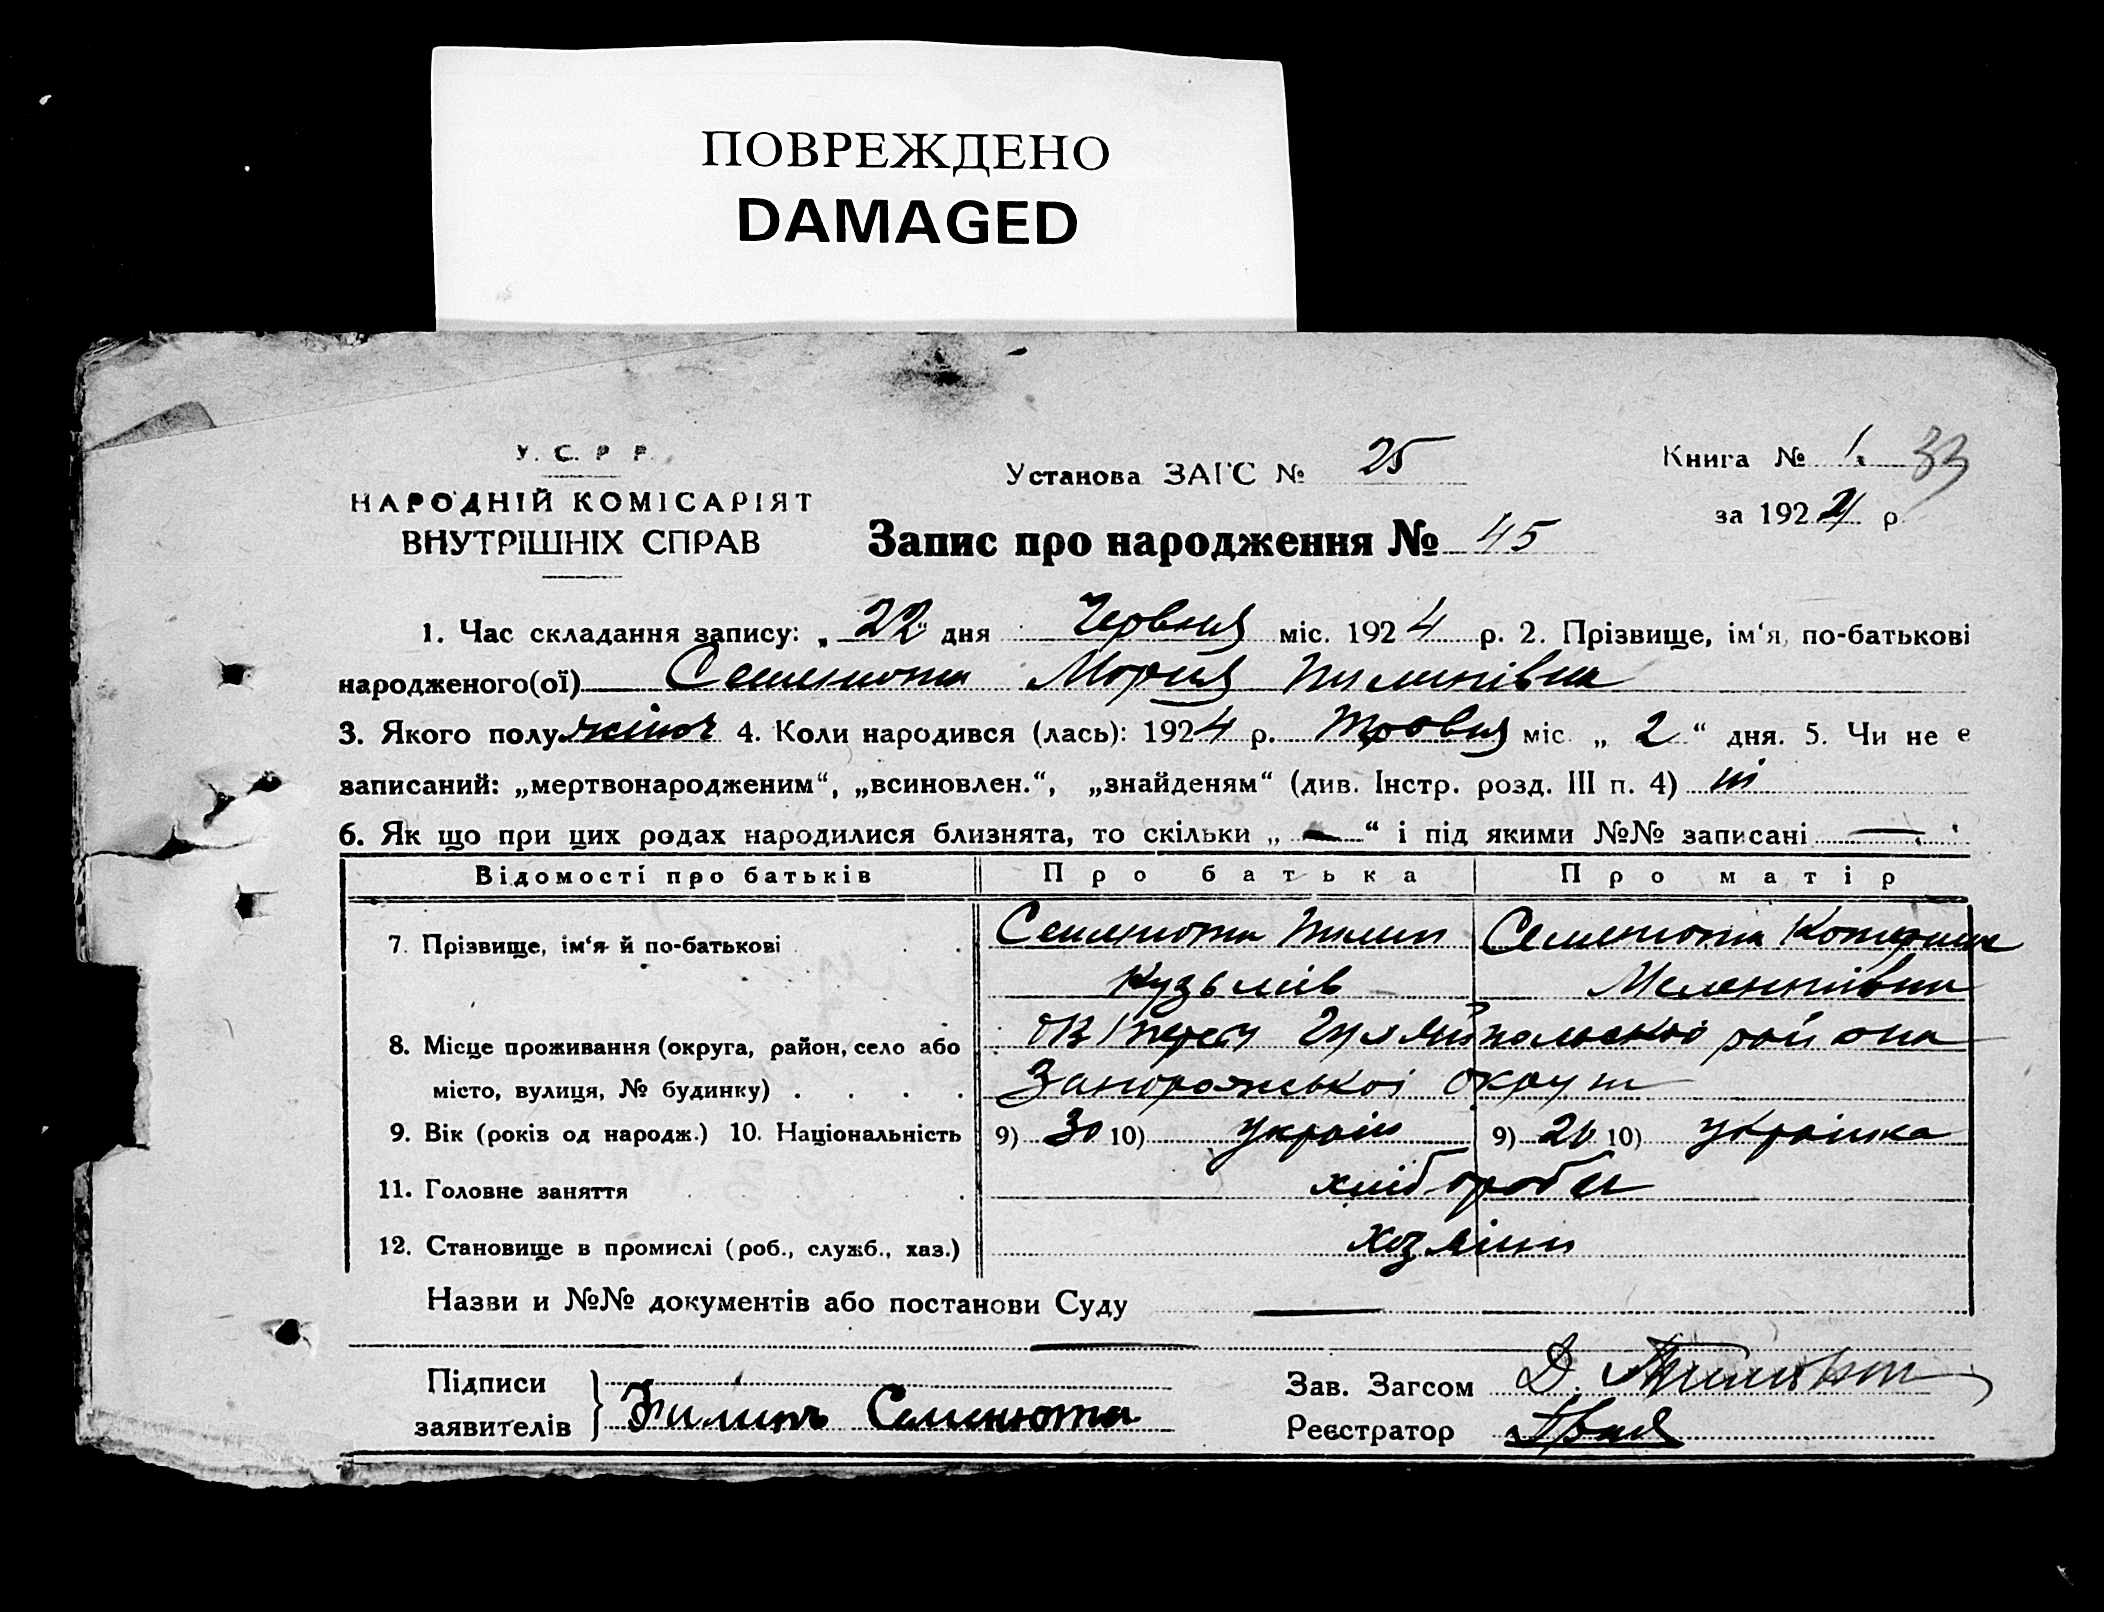 ПОВРЕЖДЕНО
DAMAGED
У. С. Р. Р.
НАРОДНІЙ КОМІСАРІЯТ
ВНУТРІШНІХ СПРАВ
Установа ЗАГС № 25
Книга № 1. 33
за 1924 р.
Запис про народження № 45
1. Час складання запису: „22“ дня Червня міс. 1924 р. 2. Прізвище, ім‘я, по-батькові
народженого(ої) Семенюта Мория Пилипівна
3. Якого полу жіноч 4. Коли народився (лась): 1924 р. Травня міс. „2“ дня. 5. Чи не є
записаний: „мертвонародженим“, „всиновлен.“, „знайденям“ (див. Інстр. розд. III п. 4) ні
6. Як що при цих родах народилися близнята, то скільки „—“ і під якими №№ записані —
Відомості про батьків Про батька Про матір
7. Прізвище, ім‘я й по-батькові Семенюта Пилип Семенюта Катерина
Кузьмів
8. Місце проживання (округа, район, село або Гуляйпольского района
місто, вулиця, № будинку) Запорожськоі округи
9. Вік (років од народж.) 10. Національність 9) 30 10) україн 9) 26 10) українка
11. Головне заняття хліборобы
12. Становище в промислі (роб., служб., хаз.) хозяіни
Назви и №№ документів або постанови Суду —
Підписи
заявителів Филипъ Семенюта
Зав. Загсом Д.
Реєстратор